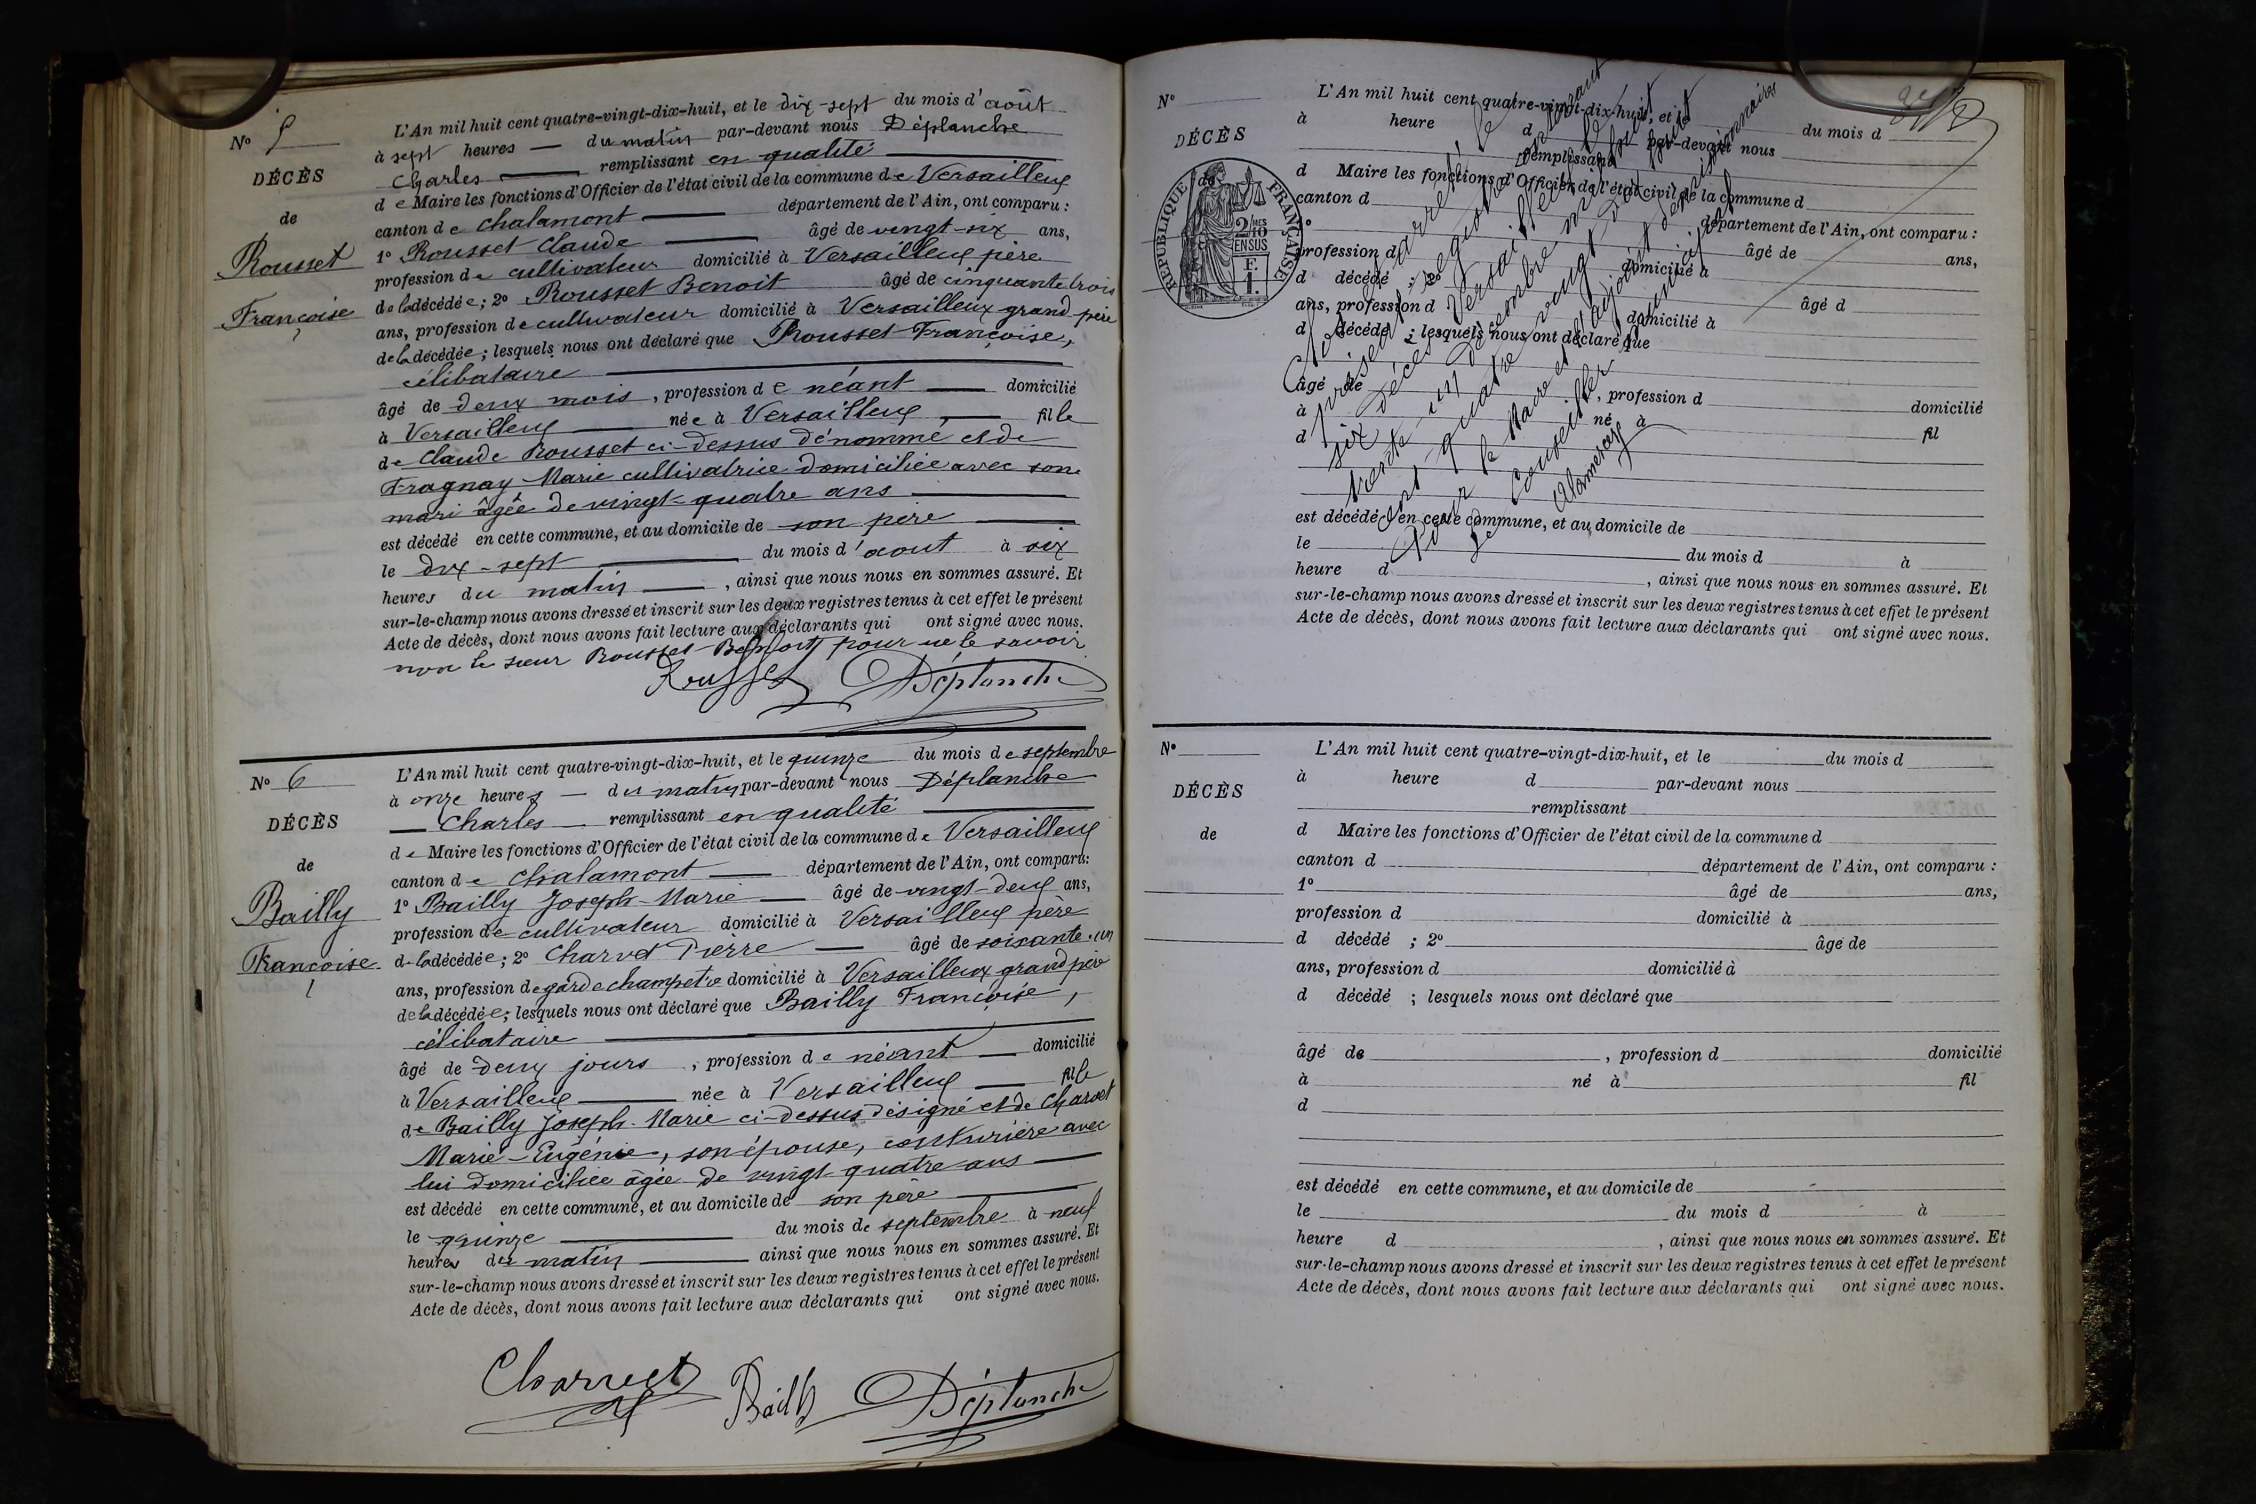 N° 5
DÉCÈS
de
Rousset
Françoise
L'An mil huit cent quatre-vingt-dix-huit, et le dix-sept du mois d'août
à sept heures du matin par-devant nous Déplanche
Charles remplissant en qualité
de Maire les fonctions d'Officier de l'état civil de la commune de Versailleux
canton de Chalamont département de l'Ain, ont comparu :
1° Rousset Claude âgé de vingt-six ans,
profession de cultivateur domicilié à Versailleux père
de la décédée ; 2° Rousset Benoit âgé de cinquante trois
ans, profession de cultivateur domicilié à Versailleux grand père
de la décédée ; lesquels nous ont déclaré que Rousset Françoise,
célibataire
âgé de deux mois, profession de néant domicilié
à Versailleux née à Versailleux, fille
de Claude Rousset ci-dessus dénommé et de
Fragnay Marie cultivatrice domiciliée avec son
mari âgée de vingt-quatre ans
est décédé en cette commune, et au domicile de son père
le dix-sept du mois d'aout à six
heures du matin, ainsi que nous nous en sommes assuré. Et
sur-le-champ nous avons dressé et inscrit sur les deux registres tenus à cet effet le présent
Acte de décès, dont nous avons fait lecture aux déclarants qui ont signé avec nous.
non le sieur Rousset Benoit pour ne le savoir
Rousset Déplanche
N° 6
DÉCÈS
de
Bailly
Françoise
L'An mil huit cent quatre-vingt-dix-huit, et le quinze du mois de septembre
à onze heures du matin par-devant nous Déplanche
Charles remplissant en qualité
de Maire les fonctions d'Officier de l'état civil de la commune de Versailleux
canton de Chalamont département de l'Ain, ont comparu :
1° Bailly Joseph-Marie âgé de vingt-deux ans,
profession de cultivateur domicilié à Versailleux père
de la décédée ; 2° Charvet Pierre âgé de soixante-un
ans, profession de garde champetre domicilié à Versailleux grand père
de la décédée ; lesquels nous ont déclaré que Bailly Françoise,
célibataire
âgé de deux jours, profession de néant domicilié
à Versailleux née à Versailleux fille
de Bailly Joseph-Marie ci-dessus désigné et de Charvet
Marie-Eugénie, son épouse, couturière avec
lui domiciliée âgée de vingt quatre ans
est décédé en cette commune, et au domicile de son père
le quinze du mois de septembre à neuf
heures du matin ainsi que nous nous en sommes assuré. Et
sur-le-champ nous avons dressé et inscrit sur les deux registres tenus à cet effet le présent
Acte de décès, dont nous avons fait lecture aux déclarants qui ont signé avec nous.
Charvet Bailly Déplanche
N°
DÉCÈS
de
RÉPUBLIQUE FRANÇAISE
2/10 MES
EN SUS
F.
1.
L'An mil huit cent quatre-vingt-dix-huit, et le du mois d
à heure d par-devant nous
remplissant
d Maire les fonctions d'Officier de l'état civil de la commune d
canton d département de l'Ain, ont comparu :
1° âgé de ans,
profession d domicilié à
d décédé ; 2° âgé d
ans, profession d domicilié à
d décédé ; lesquels nous ont déclaré que
âgé de , profession d domicilié
à né à fil
d
est décédé en cette commune, et au domicile de
le du mois d à
heure d , ainsi que nous nous en sommes assuré. Et
sur-le-champ nous avons dressé et inscrit sur les deux registres tenus à cet effet le présent
Acte de décès, dont nous avons fait lecture aux déclarants qui ont signé avec nous.
Clos et arrêté le
présent registre
décès Versailleux le
trente-un décembre mil huit
cent quatre vingt dix huit
Pour le Maire et l'adjoint démissionnaires
Le Conseiller municipal
N°
DÉCÈS
de
L'An mil huit cent quatre-vingt-dix-huit, et le du mois d
à heure d par-devant nous
remplissant
d Maire les fonctions d'Officier de l'état civil de la commune d
canton d département de l'Ain, ont comparu :
1° âgé de ans,
profession d domicilié à
d décédé ; 2° âgé de
ans, profession d domicilié à
d décédé ; lesquels nous ont déclaré que
âgé de , profession d domicilié
à né à fil
d
est décédé en cette commune, et au domicile de
le du mois d à
heure d , ainsi que nous nous en sommes assuré. Et
sur-le-champ nous avons dressé et inscrit sur les deux registres tenus à cet effet le présent
Acte de décès, dont nous avons fait lecture aux déclarants qui ont signé avec nous.